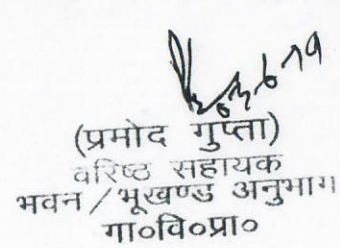 03.6.19
(प्रमोद गुप्ता)
वरिष्ठ सहायक
भवन/भूखण्ड अनुभाग
गा०वि०प्रा०